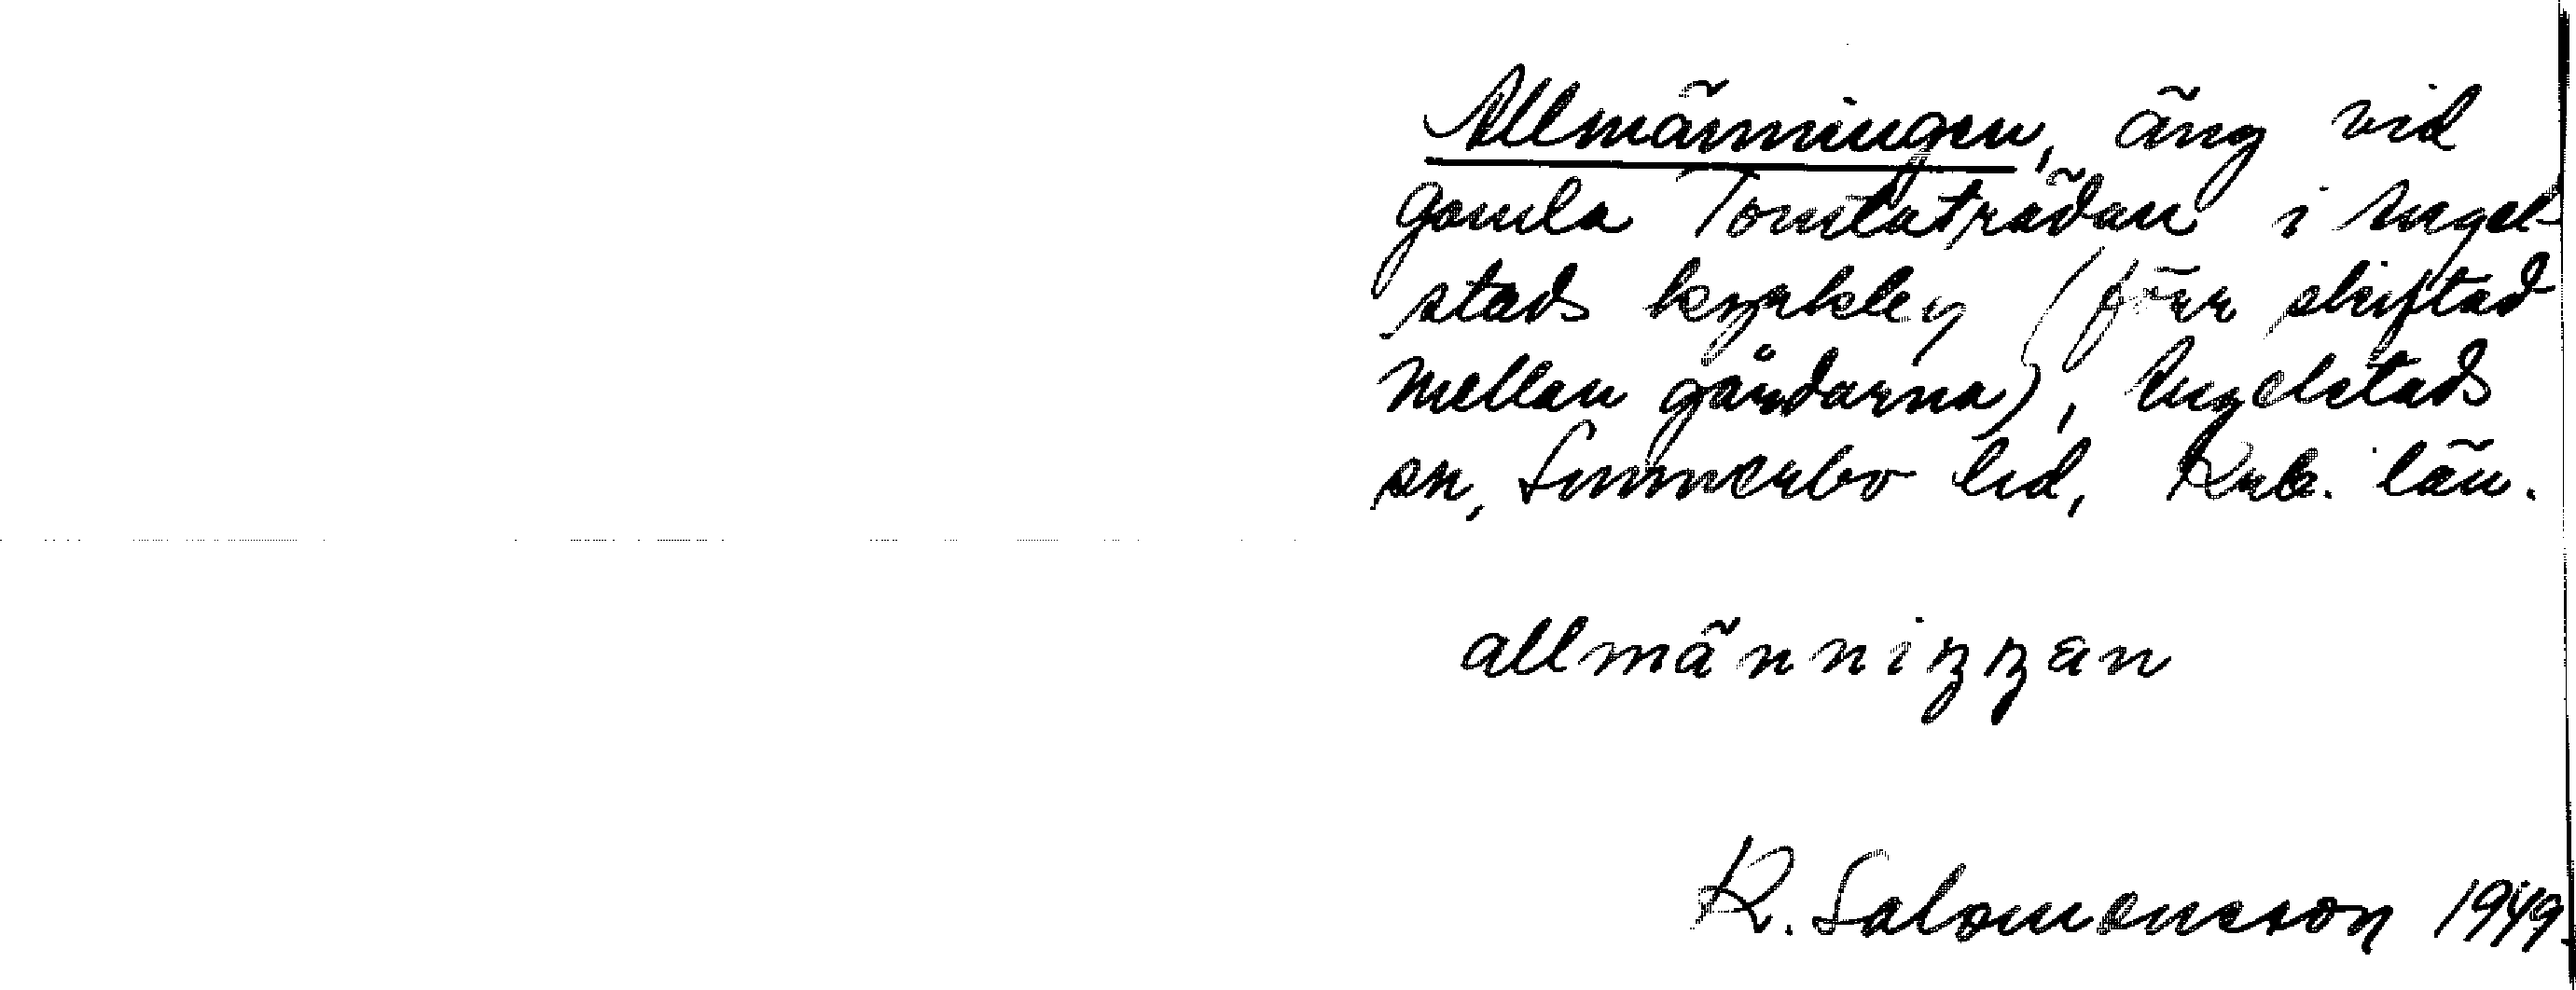 Allmänningen, äng vid
gamla Tomtaträdan i Angel-
stads kyrkby (förr skiftad
mellan gårdarna), Angelstads
sn, Sunnerbo hd, Krb. län.
allmänniŋŋan
R. Salomonsson 1949.